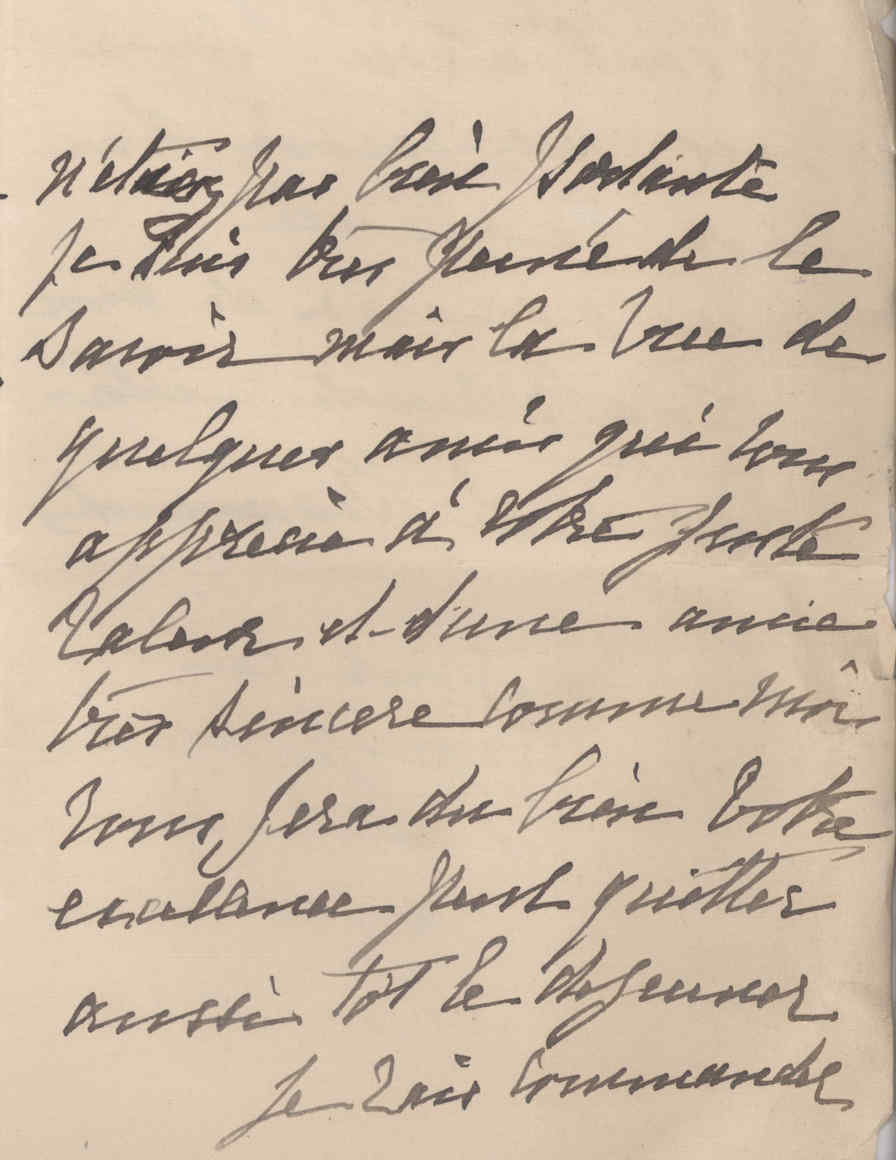 n'étiez pas bien portante
je suis très peinée de le
savoir mais la vue de
quelques amis qui vous
apprecie à votre juste
valeur et d'une amie
très sincere comme moi
vous fera du bien Votre
excellence peut quitter
aussi tôt le dejeuner
je vais commander